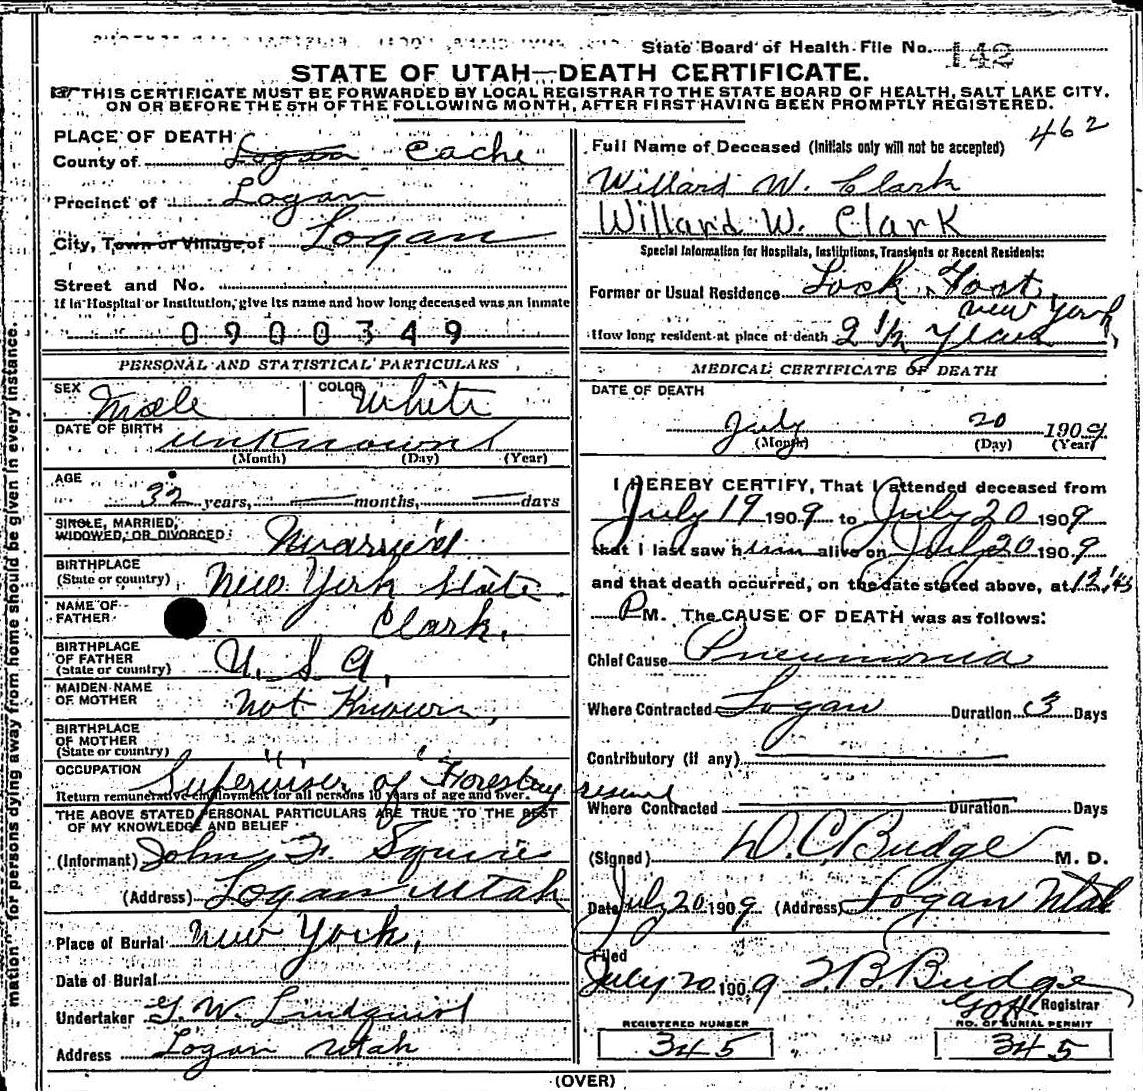 State Board of Health File No. 142
STATE OF UTAH—DEATH CERTIFICATE.
THIS CERTIFICATE MUST BE FORWARDED BY LOCAL REGISTRAR TO THE STATE BOARD OF HEALTH, SALT LAKE CITY.
ON OR BEFORE THE 5TH OF THE FOLLOWING MONTH, AFTER FIRST HAVING BEEN PROMPTLY REGISTERED.
mation" for persons dying away from home should be given in every instance.
PLACE OF DEATH
County of Logan Cache
Precinct of Logan
City, Town or Village of Logan
Street and No.
If in Hospital or Institution, give its name and how long deceased was an inmate
0900349
PERSONAL AND STATISTICAL PARTICULARS
SEX Male COLOR White
DATE OF BIRTH unknown
(Month) (Day) (Year)
AGE
32 years, — months, — days
SINGLE, MARRIED, WIDOWED, OR DIVORCED: Married
BIRTHPLACE (State or country) New York State
NAME OF FATHER Clark.
BIRTHPLACE OF FATHER (State or country) U. S. A.
MAIDEN NAME OF MOTHER Not Known,
BIRTHPLACE OF MOTHER (State or country) " "
OCCUPATION Supervisor of Forestry reserve
Return remunerative employment for all persons 10 years of age and over.
THE ABOVE STATED PERSONAL PARTICULARS ARE TRUE TO THE BEST
OF MY KNOWLEDGE AND BELIEF
(Informant) John F. Squires
(Address) Logan Utah
Place of Burial New York,
Date of Burial
Undertaker G. W. Lindquist
Address Logan Utah
462
Full Name of Deceased (Initials only will not be accepted)
Willard W. Clark
Willard W. Clark
Special Information for Hospitals, Institutions, Transients or Recent Residents:
Former or Usual Residence New York
How long resident at place of death 2 1/2 Years
MEDICAL CERTIFICATE OF DEATH
DATE OF DEATH
July 20 1909
(Month) (Day) (Year)
I HEREBY CERTIFY, That I attended deceased from
July 19 1909 to July 20 1909
that I last saw him alive on July 20 1909
and that death occurred, on the date stated above, at 12:45
P M. The CAUSE OF DEATH was as follows:
Chief Cause Pneumonia
Where Contracted Logan Duration 3 Days
Contributory (if any)
Where Contracted Duration Days
(Signed) D. C. Budge M. D.
Date July 20 1909 (Address) Logan Utah
Filed
July 20 1909 T. B. Budge
Registrar
REGISTERED NUMBER
345
NO. OF BURIAL PERMIT
345
(OVER)